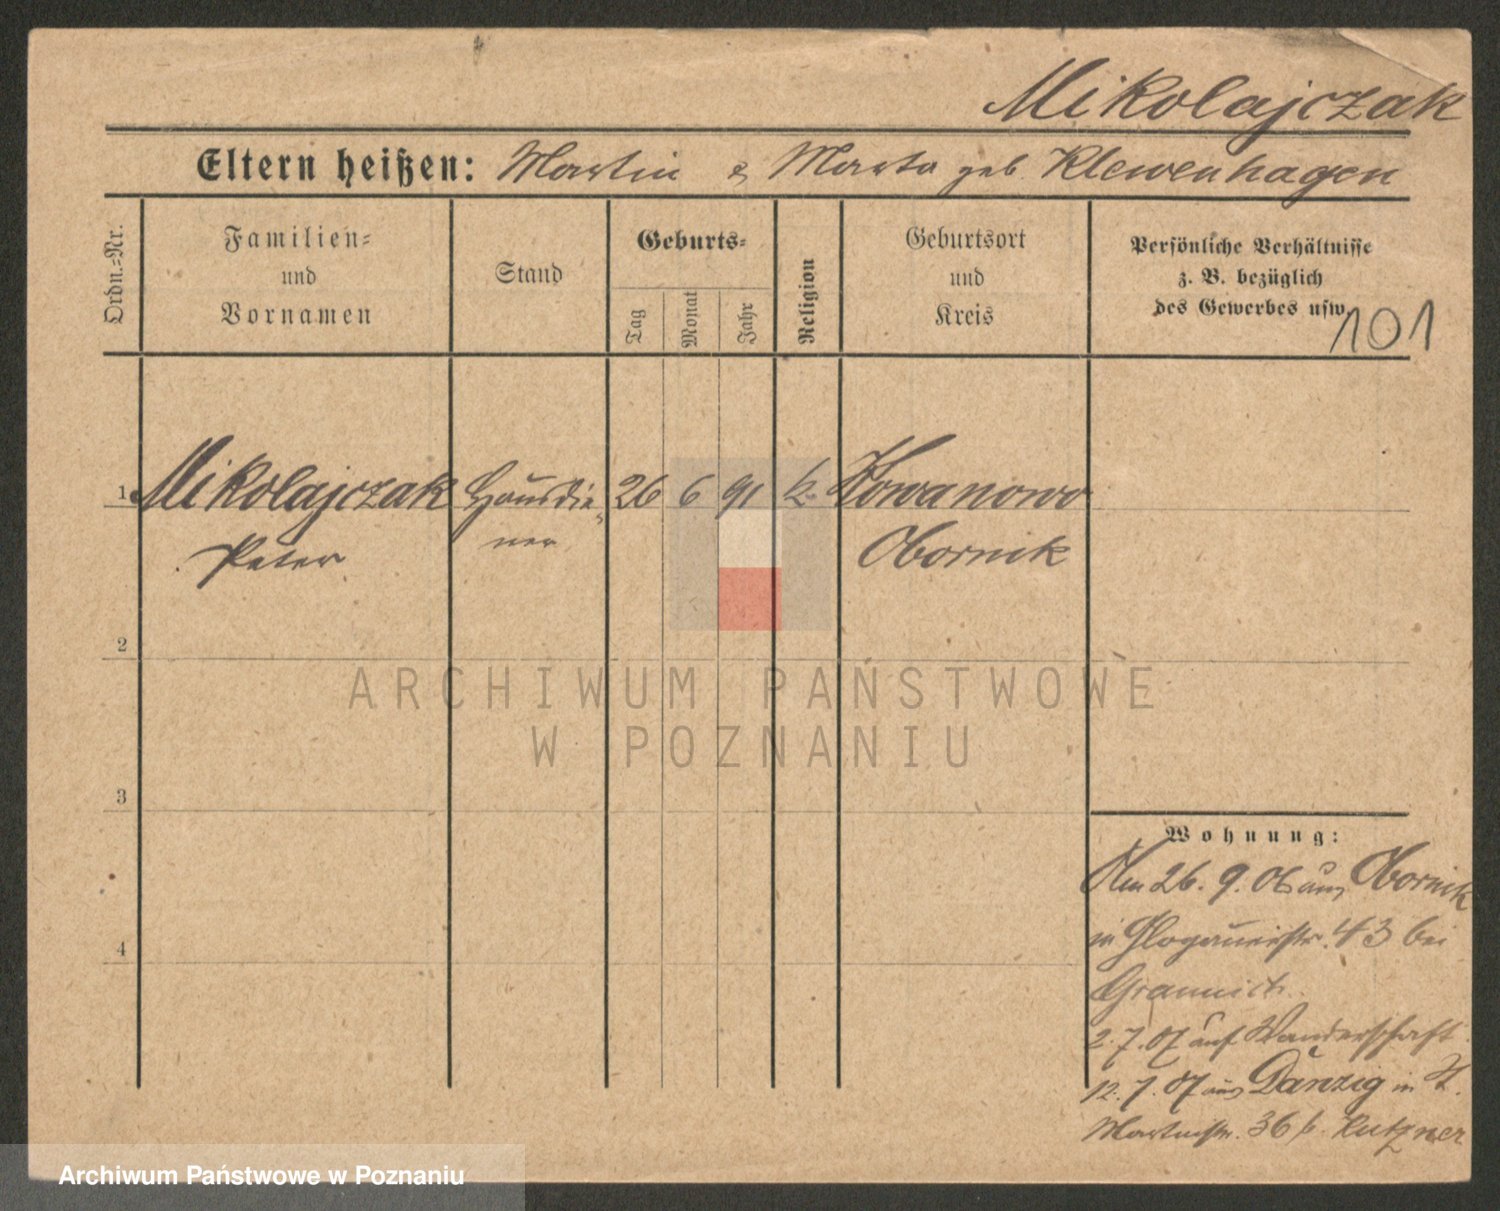 Mikolajczak
Eltern heißen: Martin & Marta geb. Klewenhagen
Ordn.-Nr.
Familien- und Vornamen
Stand
Geburts-
Tag
Monat
Jahr
Religion
Geburtsort und Kreis
Persönliche Verhältnisse
z. B. bezüglich
des Gewerbes usw.
101
1 Mikolajczak Hausdie- 26 6 91 k. Kowanowo
Peter ner Obornik
2
3
4
Wohnung:
Am 26. 9. 06 aus Obornik
in Glogauerstr. 43 bei
2. 7. 07 auf Wanderschaft
12. 7. 07 aus Danzig in St.
Martinstr. 36 b. Kutzner
ARCHIWUM PAŃSTWOWE
W POZNANIU
Archiwum Państwowe w Poznaniu